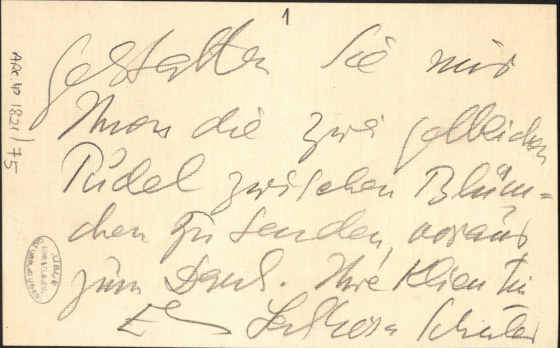 1
Gestatten Sie mir
Ihnen die zwei gelblichen
Rüdel zwischen Blüm=
chen zu senden, voraus
zum Dank. Ihre Klientin
E Lasker Schüler
ARC. 40 1821/75